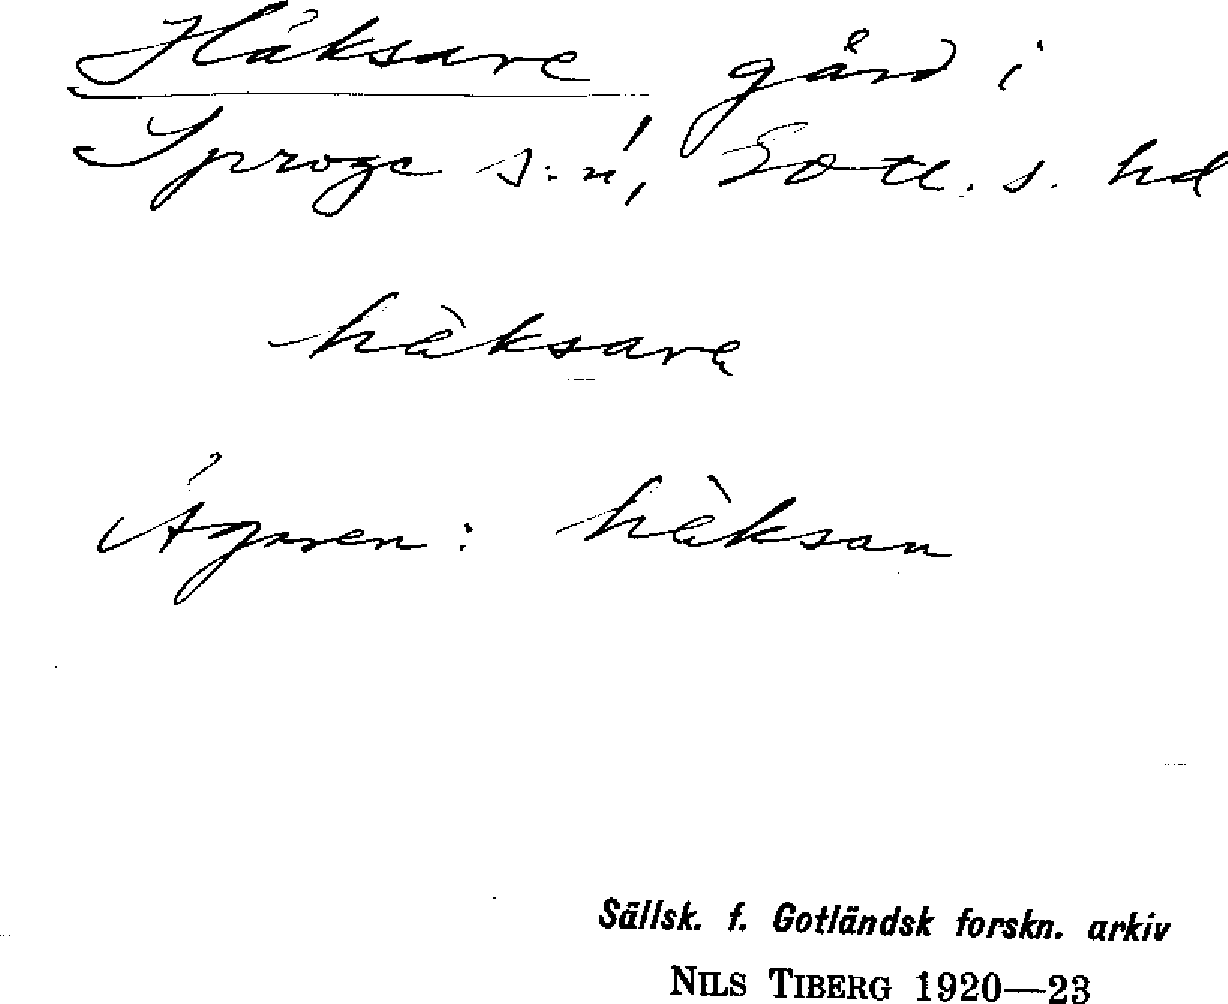 Häksare gård i
Sproge s:n, Gotl. s. hd
hä̀ksarä
Ägaren: hä̀ksan
Sällsk. f. Gotländsk forskn. arkiv
NILS TIBERG 1920—23